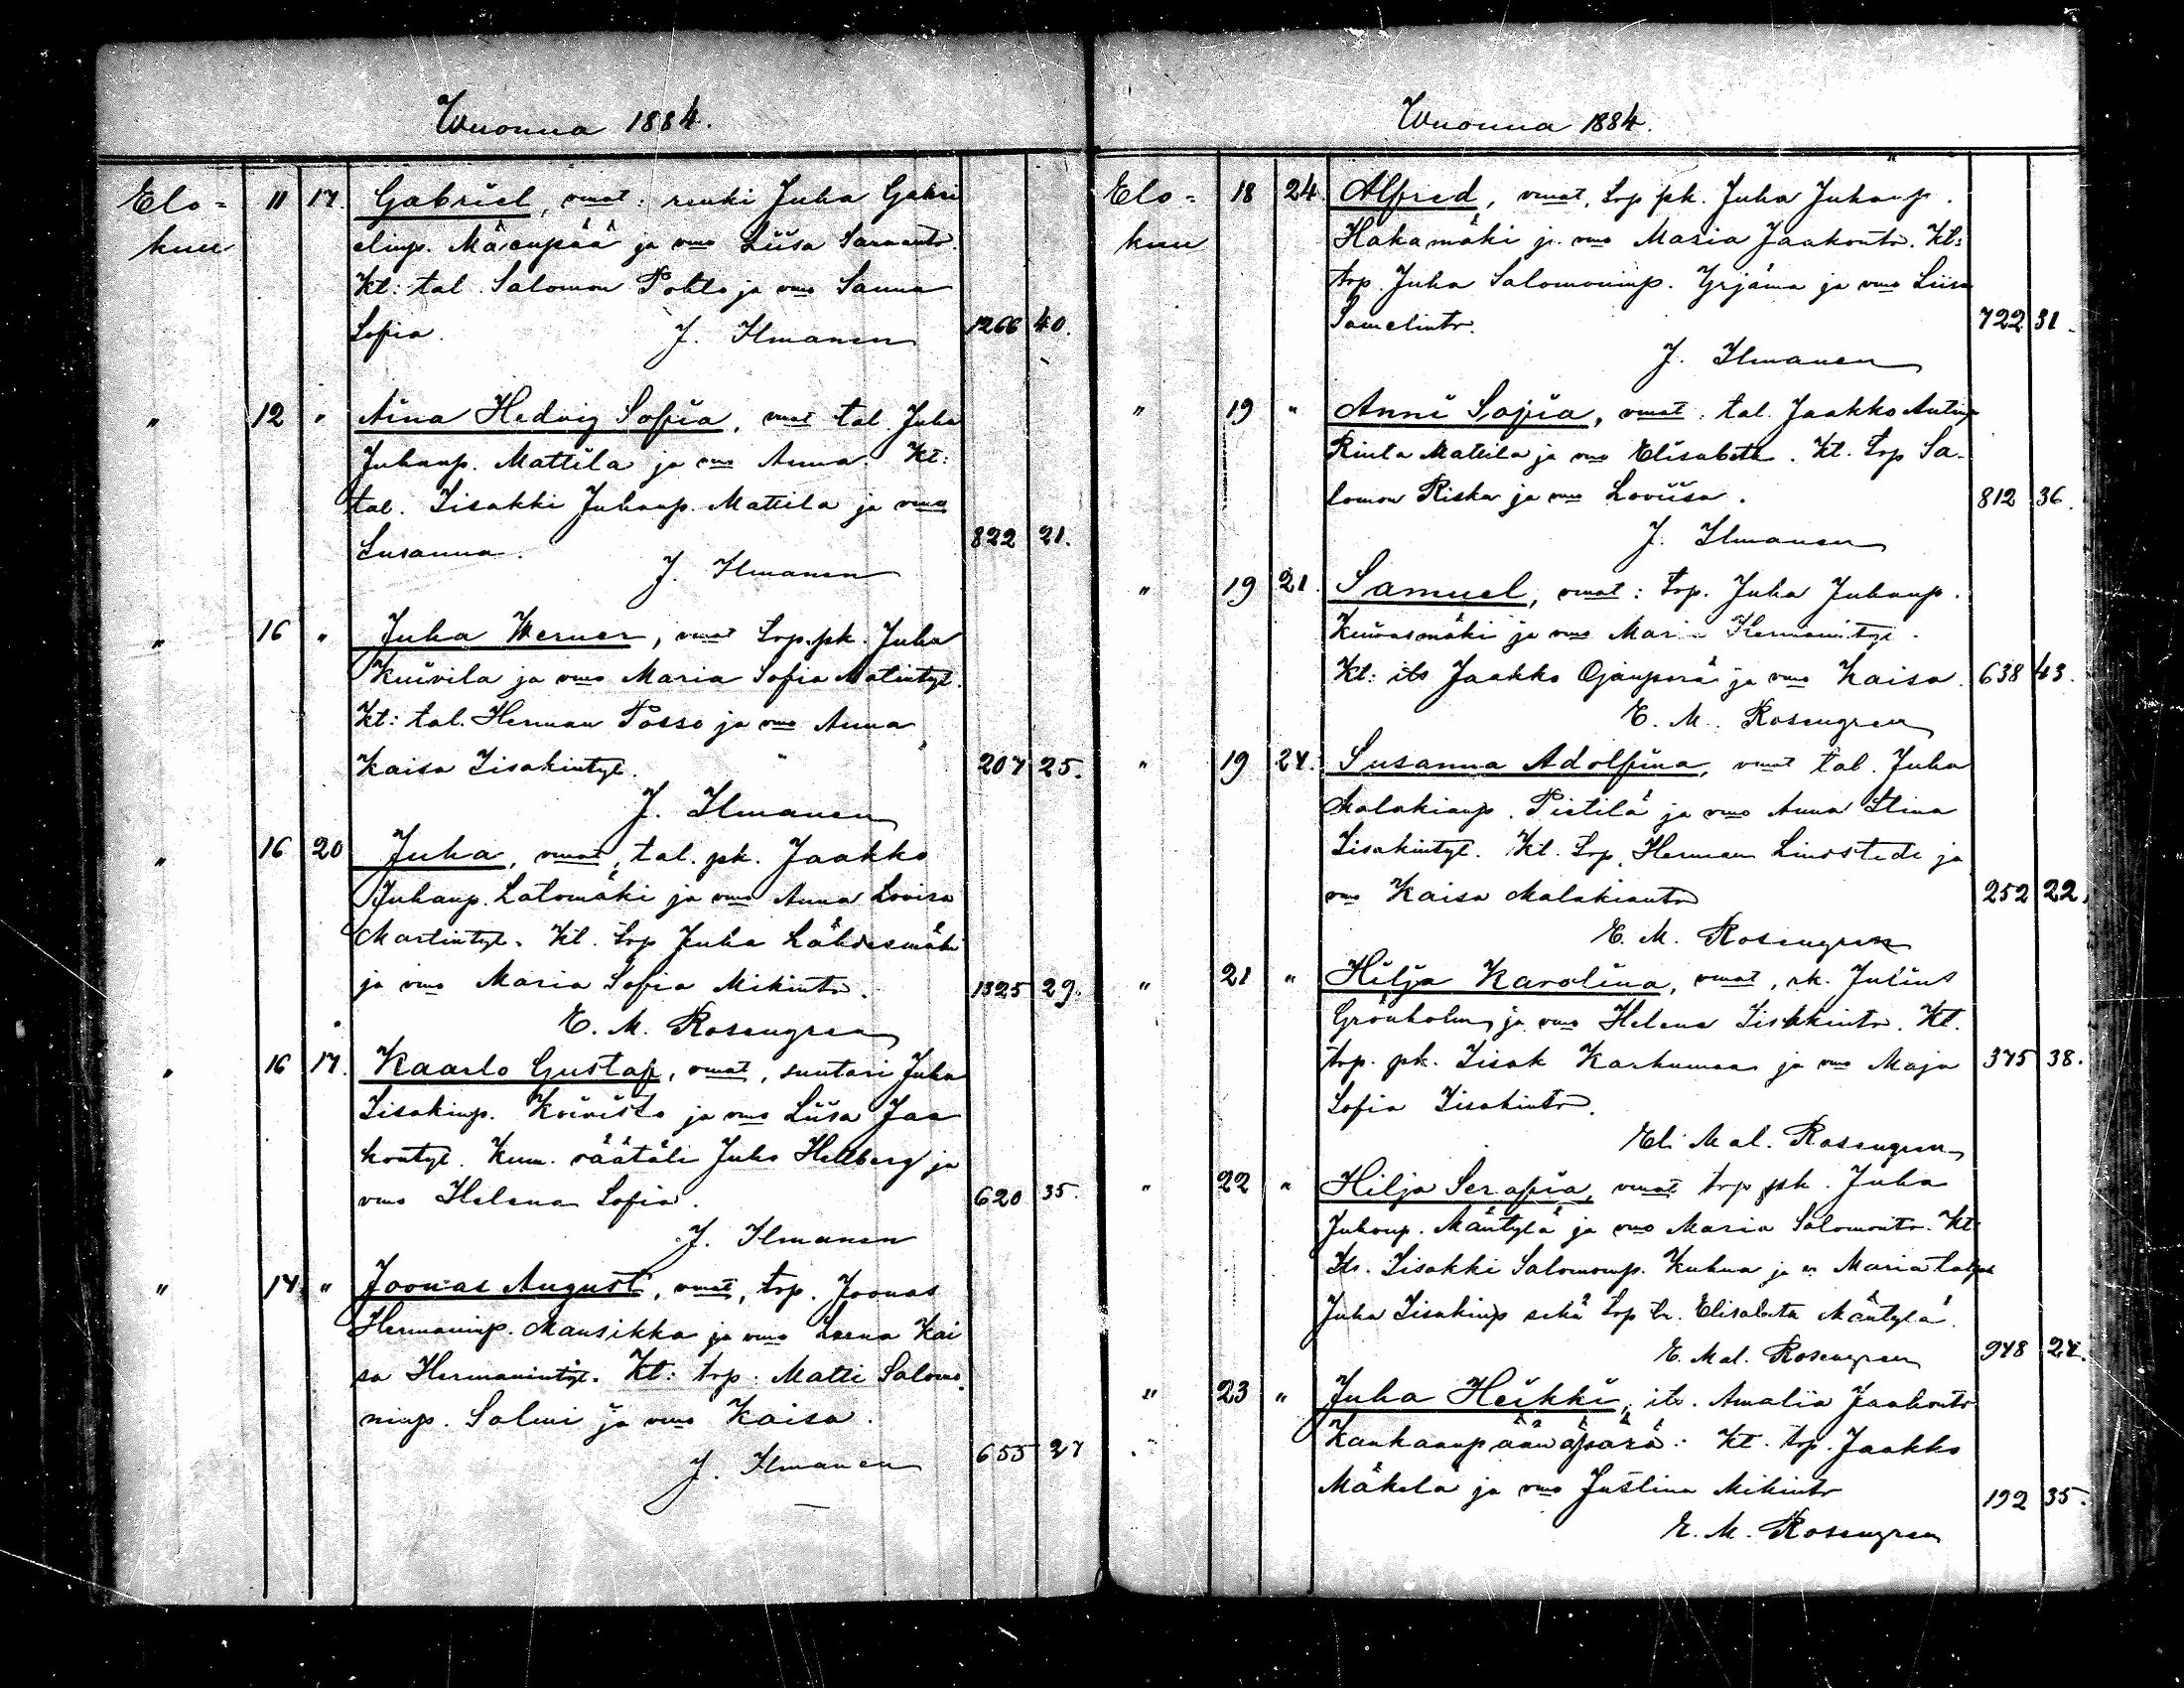 Wuonna 1884.
Elo- 11 17. Gabriel, vmat: renki Juha Gabri
kuu elinp. Mäenpää ja vmo Liisa
Kt: tal. Salomon Pohto ja vmo Sanna
Sofia. J. Ilmanen 1266 40.
" 12 " Aina Hedvig Sofia, vmat tal. Juha
Juhanp. Mattila ja vmo Anna. Kt:
tal. Iisakki Juhanp. Mattila ja vmo
Susanna. 822 21.
J. Ilmanen
" 16 " Juha Werner, vmat trp. pk. Juha
Kuivila ja vmo Maria Sofia Matintyt.
Kt: tal. Herman Posso ja vmo Anna
Kaisa Iisakintyt. 207 25.
J. Ilmanen
" 16 20 Juha, vmat, tal. pk. Jaakko
Juhanp. Latomäki ja vmo Anna Lovisa
Martintyt. Kt. trp Juha Lähdesmäki
ja vmo Maria Sofia Mikintr. 1325 29.
E. M. Rosengren
" 16 17. Kaarlo Gustaf, vmat, suutari Juha
Iisakinp. Koivisto ja vmo Liisa Jaa
kontyt. Kum. räätäli Juho Hellberg ja
vmo Helena Sofia. 620 35.
J. Ilmanen
" 14 " Joonas August, vmat, trp. Joonas
Hermaninp. Mansikka ja vmo Leena Kai
sa Hermanintyt. Kt: trp. Matti Salomo
ninp. Salmi ja vmo Kaisa.
J. Ilmanen 655 27
Wuonna 1884.
Elo- 18 24. Alfred, vmat, trp pk. Juha Juhanp.
kuu Hakamäki ja vmo Maria Jaakontr. Kt:
trp. Juha Salomoninp. Yrjäma ja vmo Liisa
Samelintr. 722 31.
J. Ilmanen
" 19 " Anni Sofia, vmat. tal. Jaakko Antinp
Rinta Mattila ja vmo Elisabeth. Kt. trp Sa-
lomon Riska ja vmo Loviisa. 812 36.
J. Ilmanen
" 19 21. Samuel, vmat: trp. Juha Juhanp.
Kuivasmäki ja vmo Maria Hermanintyt.
Kt: its Jaakko Ojanperä ja vmo Kaisa. 638 43.
E. M. Rosengren
" 19 24. Susanna Adolfina, vmat tal. Juha
Malakianp. Pietilä ja vmo Anna Stina
Iisakintyt. Kt. trp. Herman Lindstedt ja
vmo Kaisa Malakiantr 252 22.
E. M. Rosengren
" 21 " Hilja Karolina, vmat, rk. Julius
Grönholm ja vmo Helena Iisakintr. Kt.
trp. pk. Iisak Karhumaa ja vmo Maja 375 38.
Sofia Iisakintr.
El. Mal. Rosengren
" 22 " Hilja Serafia, vmat trp pk. Juha
Juhonp. Mäntylä ja vmo Maria Salomontr. Kt
Its. Iisakki Salomonp. Kuhna ja v. Maria
Juha Iisakinp sekä trp tr. Elisabeta Mäntylä.
E. Mal. Rosengren 948 24.
" 23 " Juha Heikki, its. Amalia Jaakontr
Kankaanpäänäperä. Kt. trp. Jaakko
Mäkelä ja vmo Justina Mikintr 192 35.
E. M. Rosengren